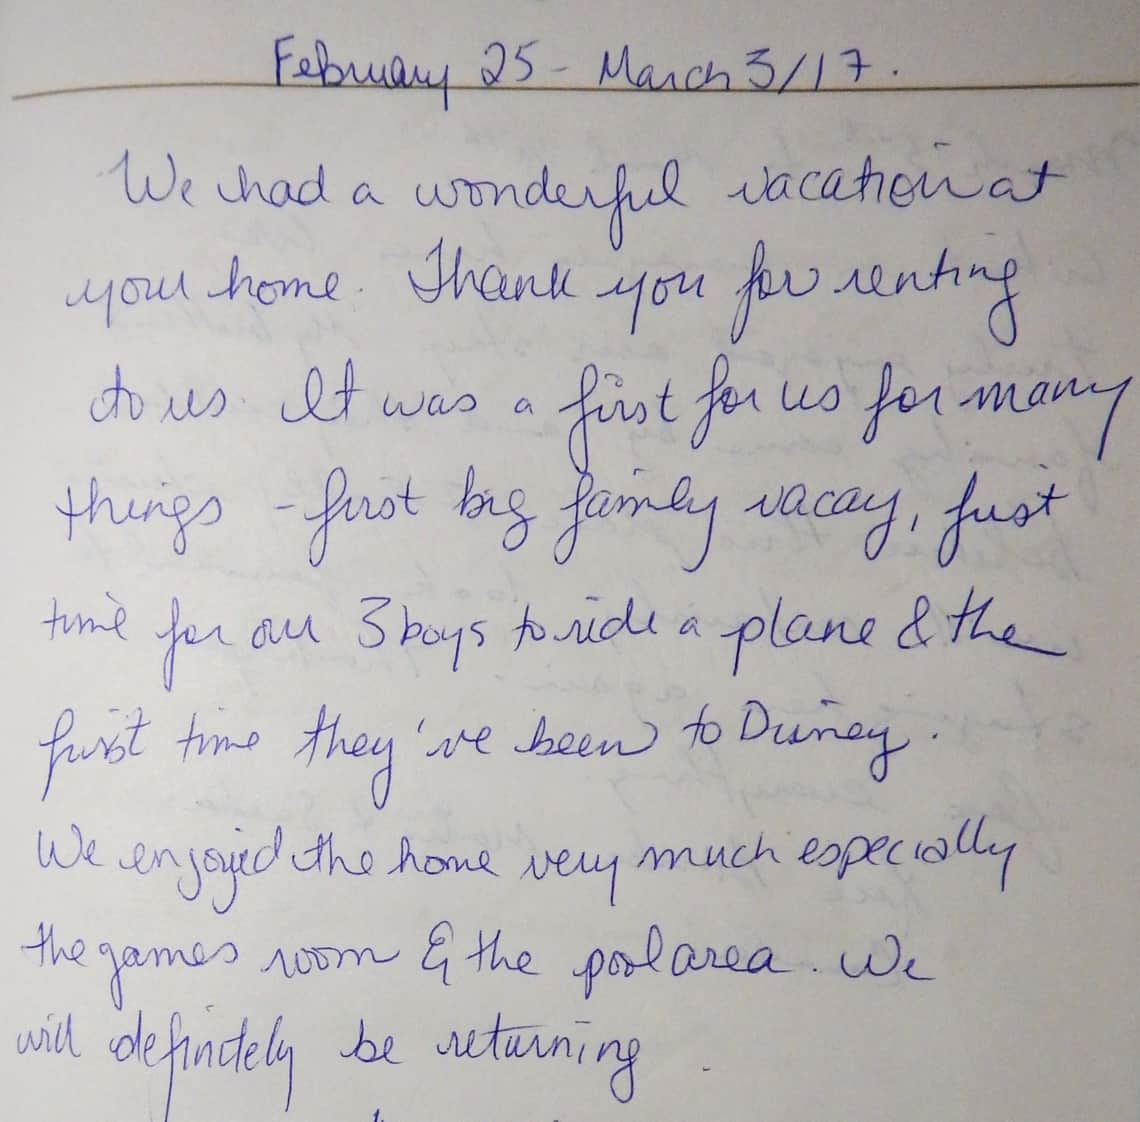 February 25 - March 3/17.
We had a wonderful vacation at
your home. Thank you for renting
to us. It was a first for us for many
things - first big family vacay, first
time for our 3 boys to ride a plane & the
first time they've been to Disney.
We enjoyed the home very much especially
the games room & the pool area. We
will definitely be returning.